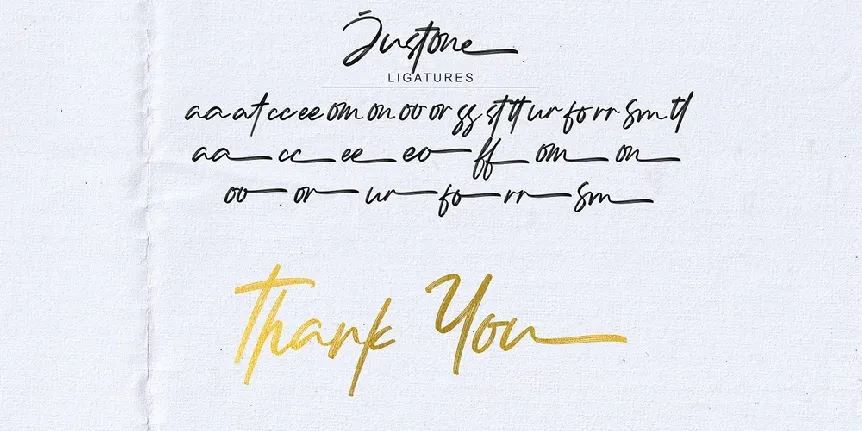 Justone
LIGATURES
aa at cc ee om on oo or gg st tt ur fo rr Sm tl
aa cc ee eo ff om on
oo or ur fo rr Sm
Thank You